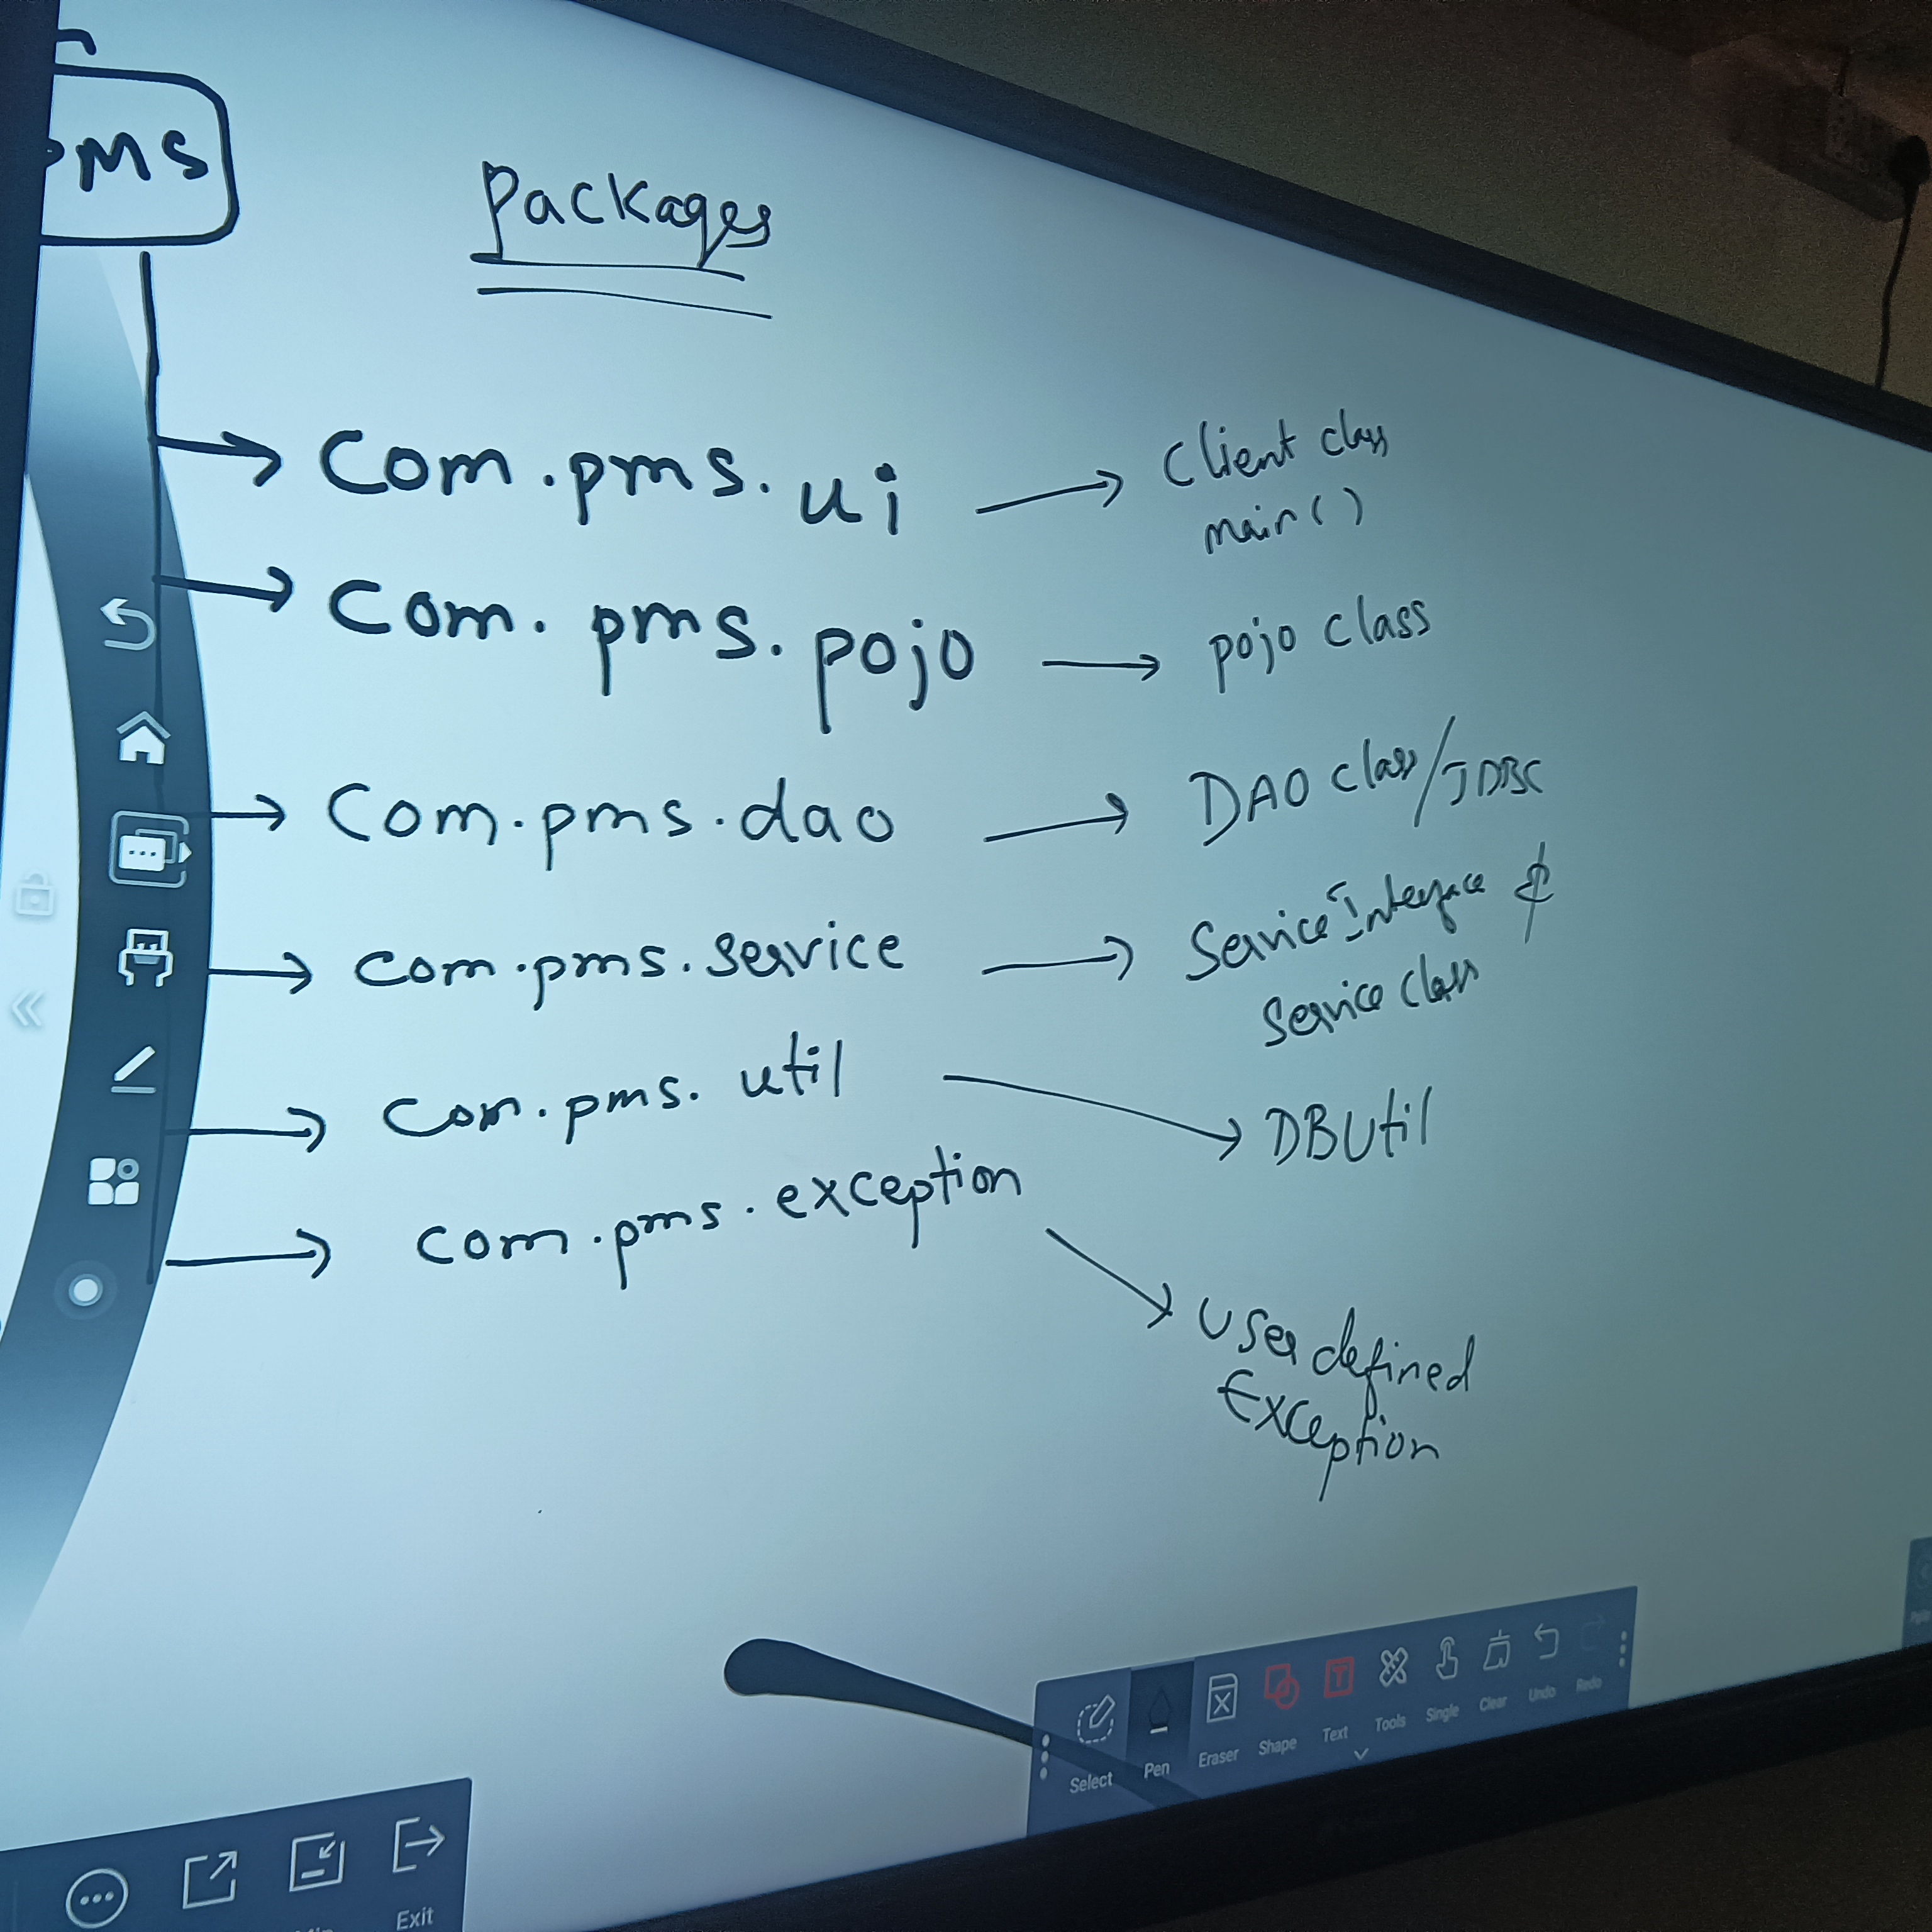 PMS
Packages
Com.pms.ui → Client class
main()
Com.pms.pojo → pojo class
Com.pms.dao → DAO class/JDBC
com.pms.service → Service Interface &
Service class
com.pms.util → DBUtil
com.pms.exception → User defined
Exception
Select Pen Eraser Shape Text Tools Single Clear Undo Redo
Exit